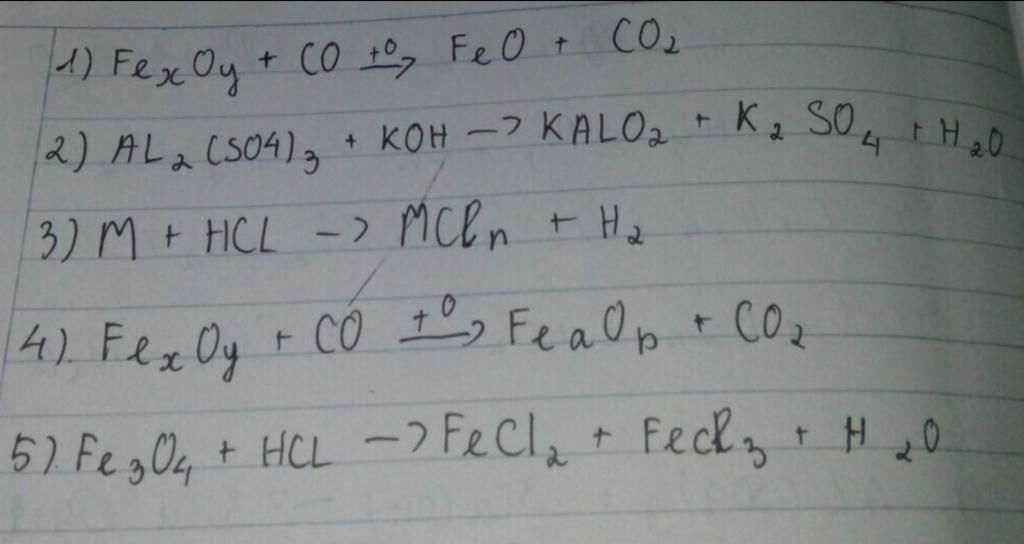 1) FexOy + CO +0→ FeO + CO2
2) AL2(SO4)3 + KOH → KALO2 + K2SO4 + H2O
3) M + HCL → MCln + H2
4). FexOy + CO +0→ FeaOb + CO2
5). Fe3O4 + HCL → FeCl2 + FeCl3 + H2O